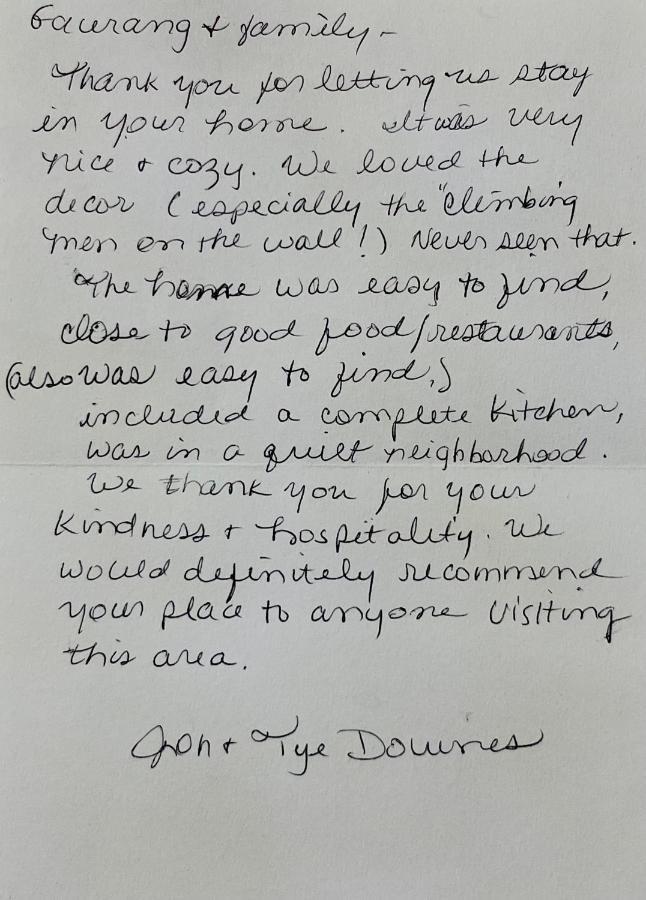 Gaurang & family -
Thank you for letting us stay
in your home. It was very
nice & cozy. We loved the
decor (especially the "climbing
men on the wall!) Never seen that.
The home was easy to find,
close to good food/restaurants,
(also was easy to find,)
included a complete kitchen,
was in a quiet neighborhood.
We thank you for your
kindness & hospitality. We
would definitely recommend
your place to anyone visiting
this area.
Jon & Tye Downes